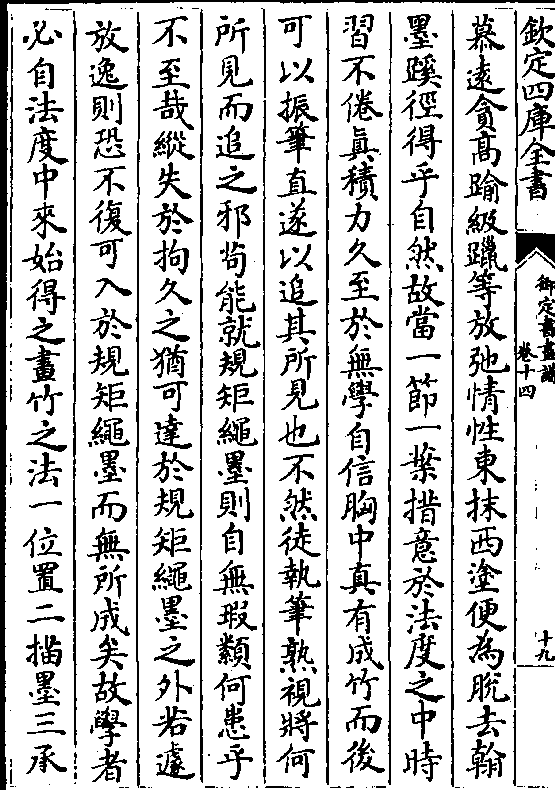 欽定四庫全書
御定書畫譜
卷十四
十九
慕逺貪髙踰級躐等放弛情性東抹西塗便為脫去翰
墨蹊徑得乎自然故當一節一葉措意於法度之中時
習不倦真積力久至於無學自信胸中真有成竹而後
可以振筆直遂以追其所見也不然徒執筆熟視將何
所見而追之邪茍能就規矩繩墨則自無瑕纇何患乎
不至哉縱失於拘久之猶可達於規矩繩墨之外若遽
放逸則恐不復可入於規矩繩墨而無所成矣故學者
必自法度中來始得之畫竹之法一位置二描墨三承